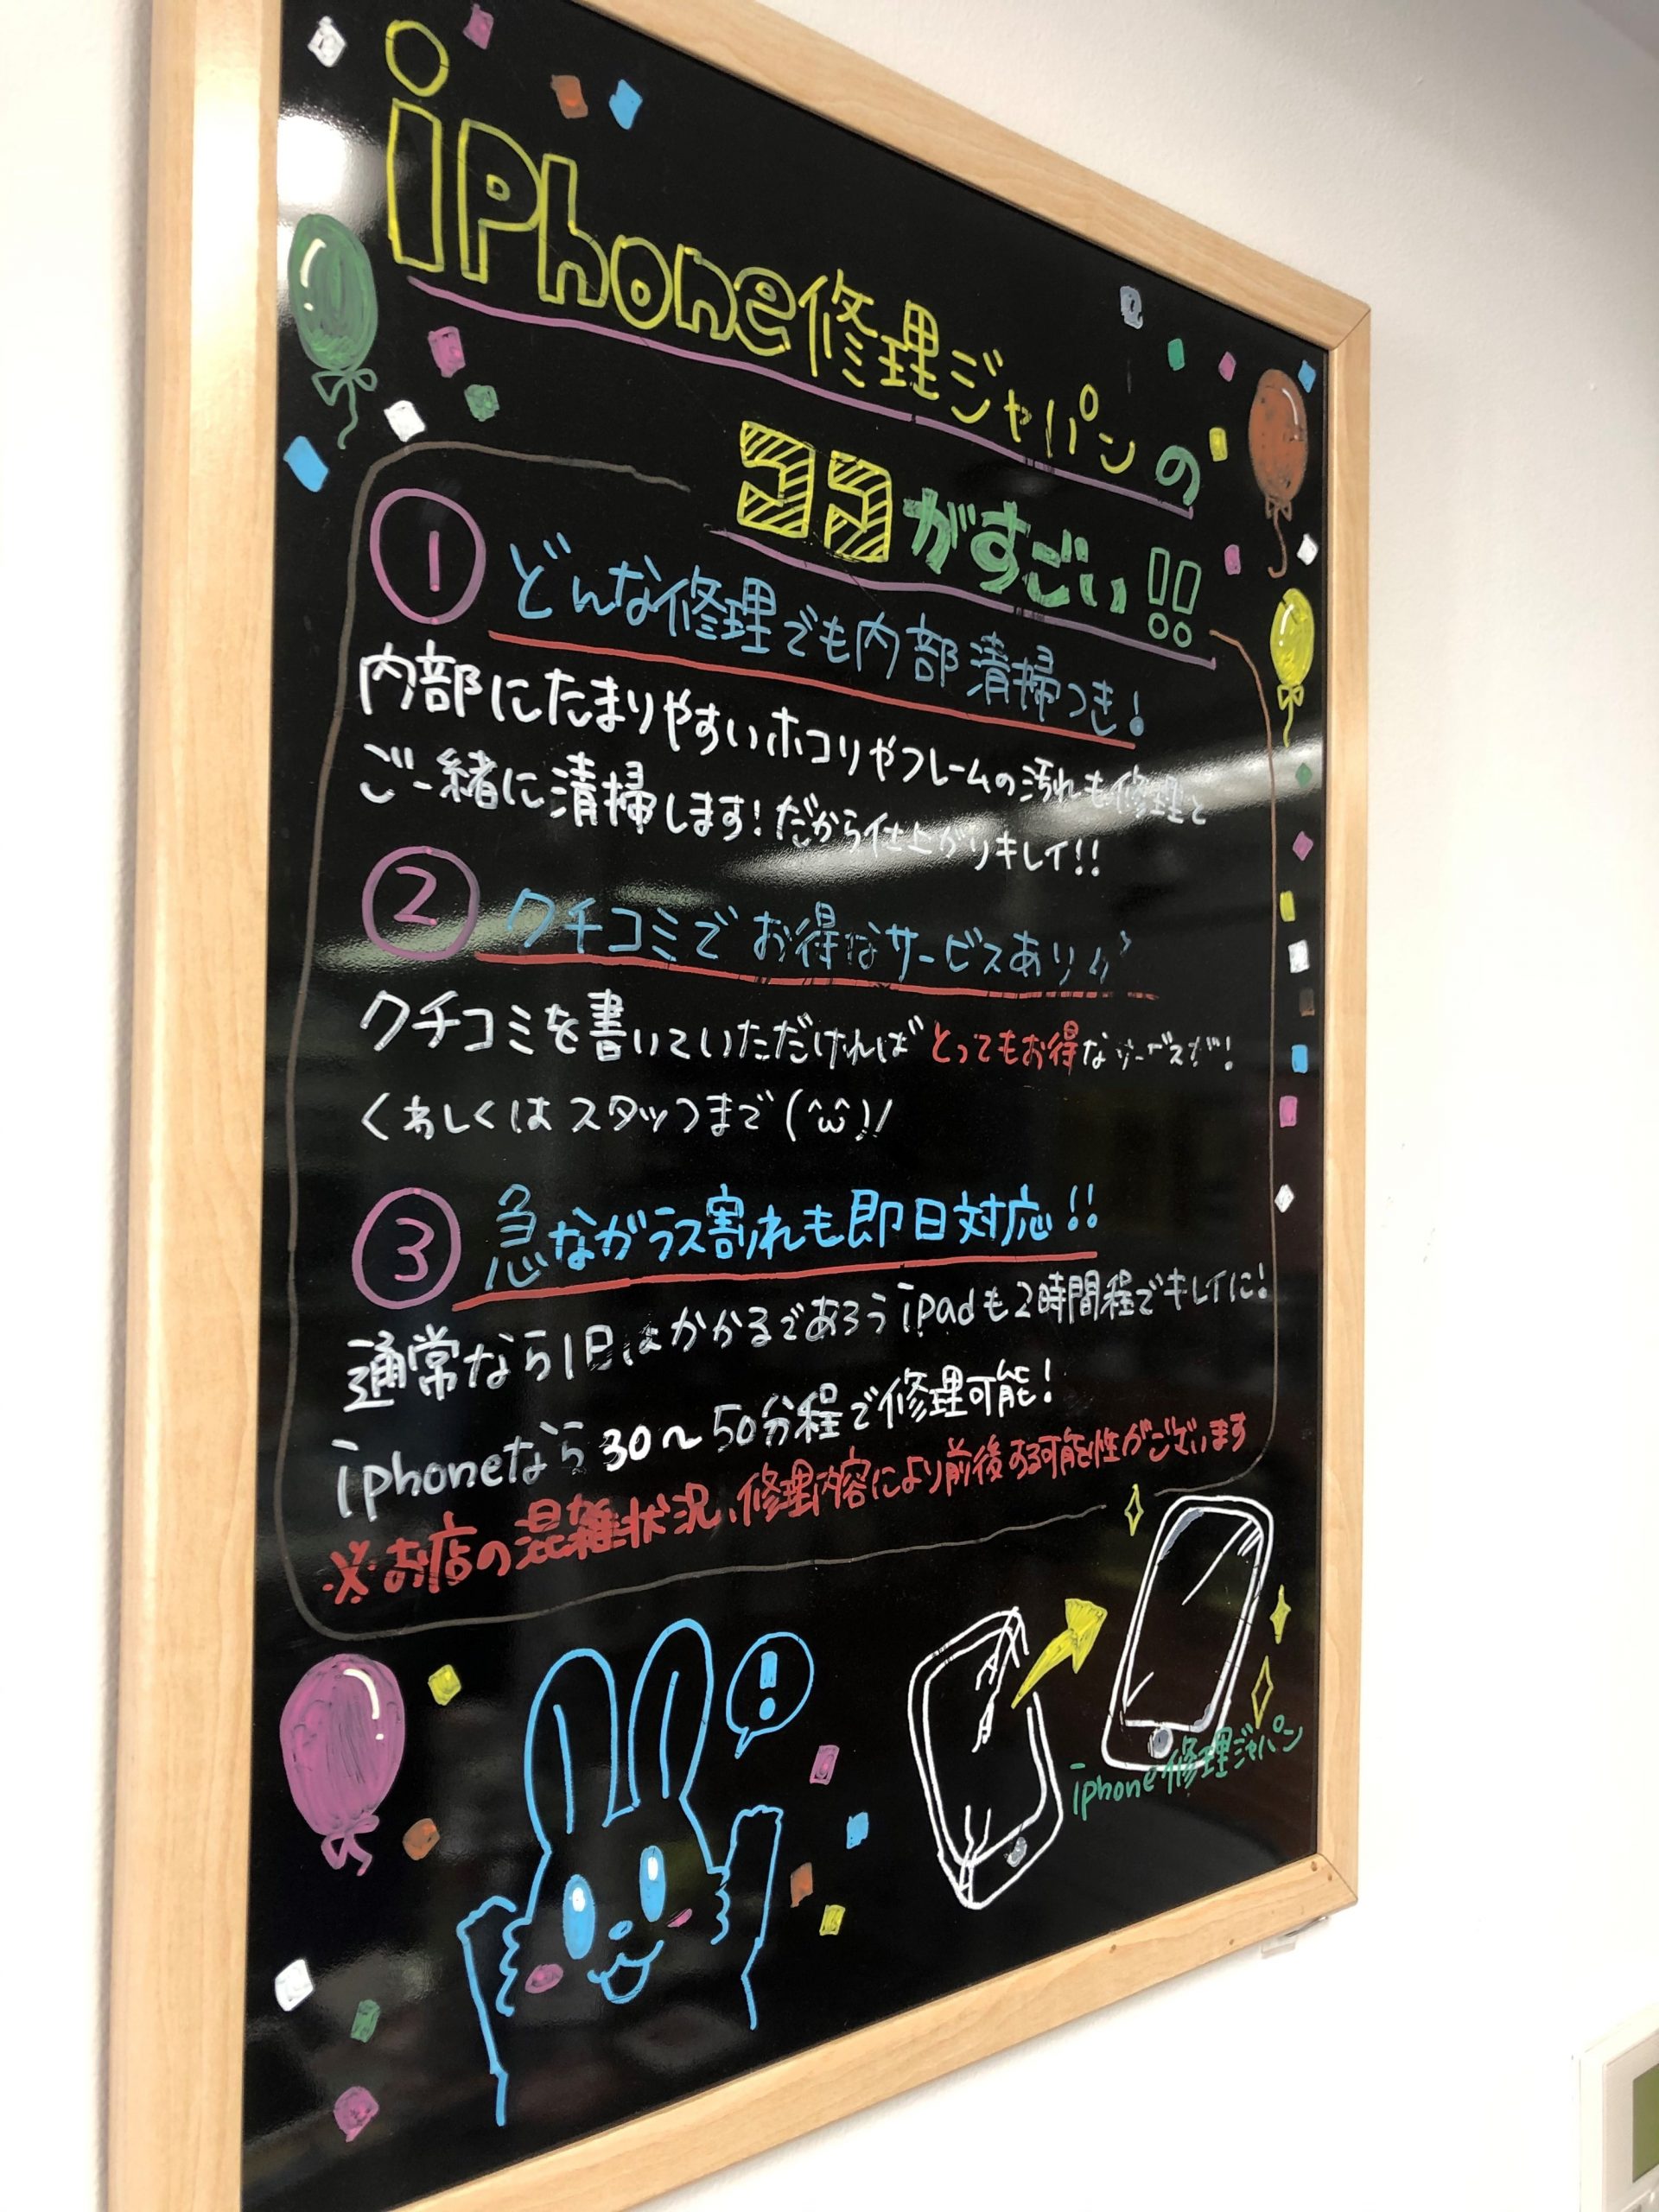 iPhone修理ジャパンの
ココがすごい!!
① どんな修理でも内部清掃つき!
内部にたまりやすいホコリやフレームの汚れも修理と
ご一緒に清掃します!だから仕上がりキレイ!!
② クチコミでお得なサービスあり
クチコミを書いていただければとってもお得なサービスが!
くわしくはスタッフまで(^ω^)/
③ 急なガラス割れも即日対応!!
通常なら1日はかかるであろうiPadも2時間程でキレイに!
iphoneなら30〜50分程で修理可能!
※お店の混雑状況、修理内容により前後する可能性がございます
!
iphone修理ジャパン